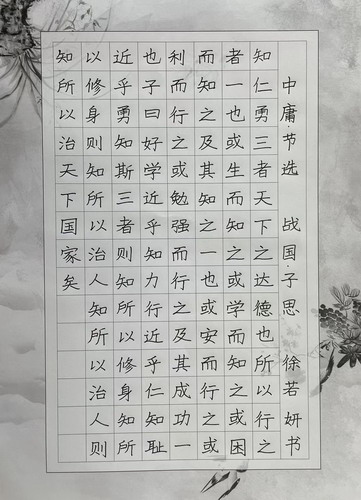 中庸·节选 战国·子思 徐若妍书
知仁勇三者天下之达德也所以行之
者一也或生而知之或学而知之或困
而知之及其知之一也或安而行之或
利而行之或勉强而行之及其成功一
也子曰好学近乎知力行近乎仁知耻
近乎勇知斯三者则知所以修身知所
以修身则知所以治人知所以治人则
知所以治天下国家矣